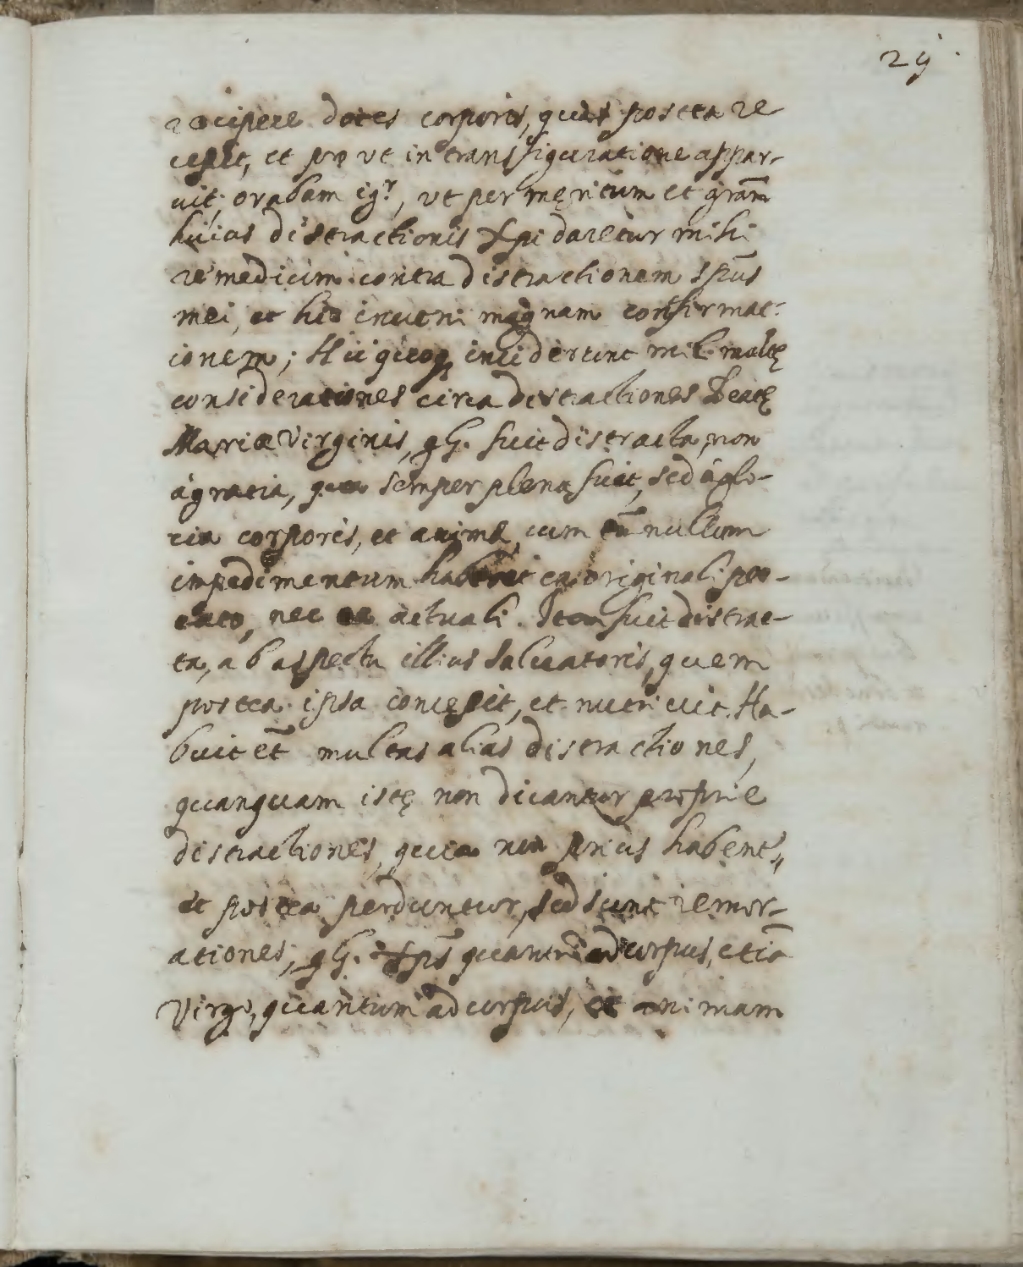 29
recipere dotes corporis, quas postea re
cepit, et pro ut in transfiguratione appar-
uit; orabam igr, vt per meritum et gram̃
huius distractionis Xpi daretur mihi
remedium contra distractionem spũs
mei, et hic inueni magnam confirmat-
ionem; Hic quoq inciderunt mihi multę
considerationes circa distractiones Beatę
Mariæ Virginis, q̃ fuit distracta, non
à gratia, qua semper plena fuit, sed à glo-
ria corporis, et animę, cum tñ nullum
impedimentum haberet ex originali pec-
cato, nec ex actuali. Item fuit distrac-
ta, ab aspectu illius saluatoris, quem
postea ipsa concepit, et nutriuit. Ha-
buit et̃ multas alias distractiones,
quanquam istę non dicantur proprie
distractiones, quia non prius habent,,
et postea perduntur, sed sunt remor-
ationes; Xpũs quantũ ad corpus, etiã
Virgo, quantum ad corpus, et animam